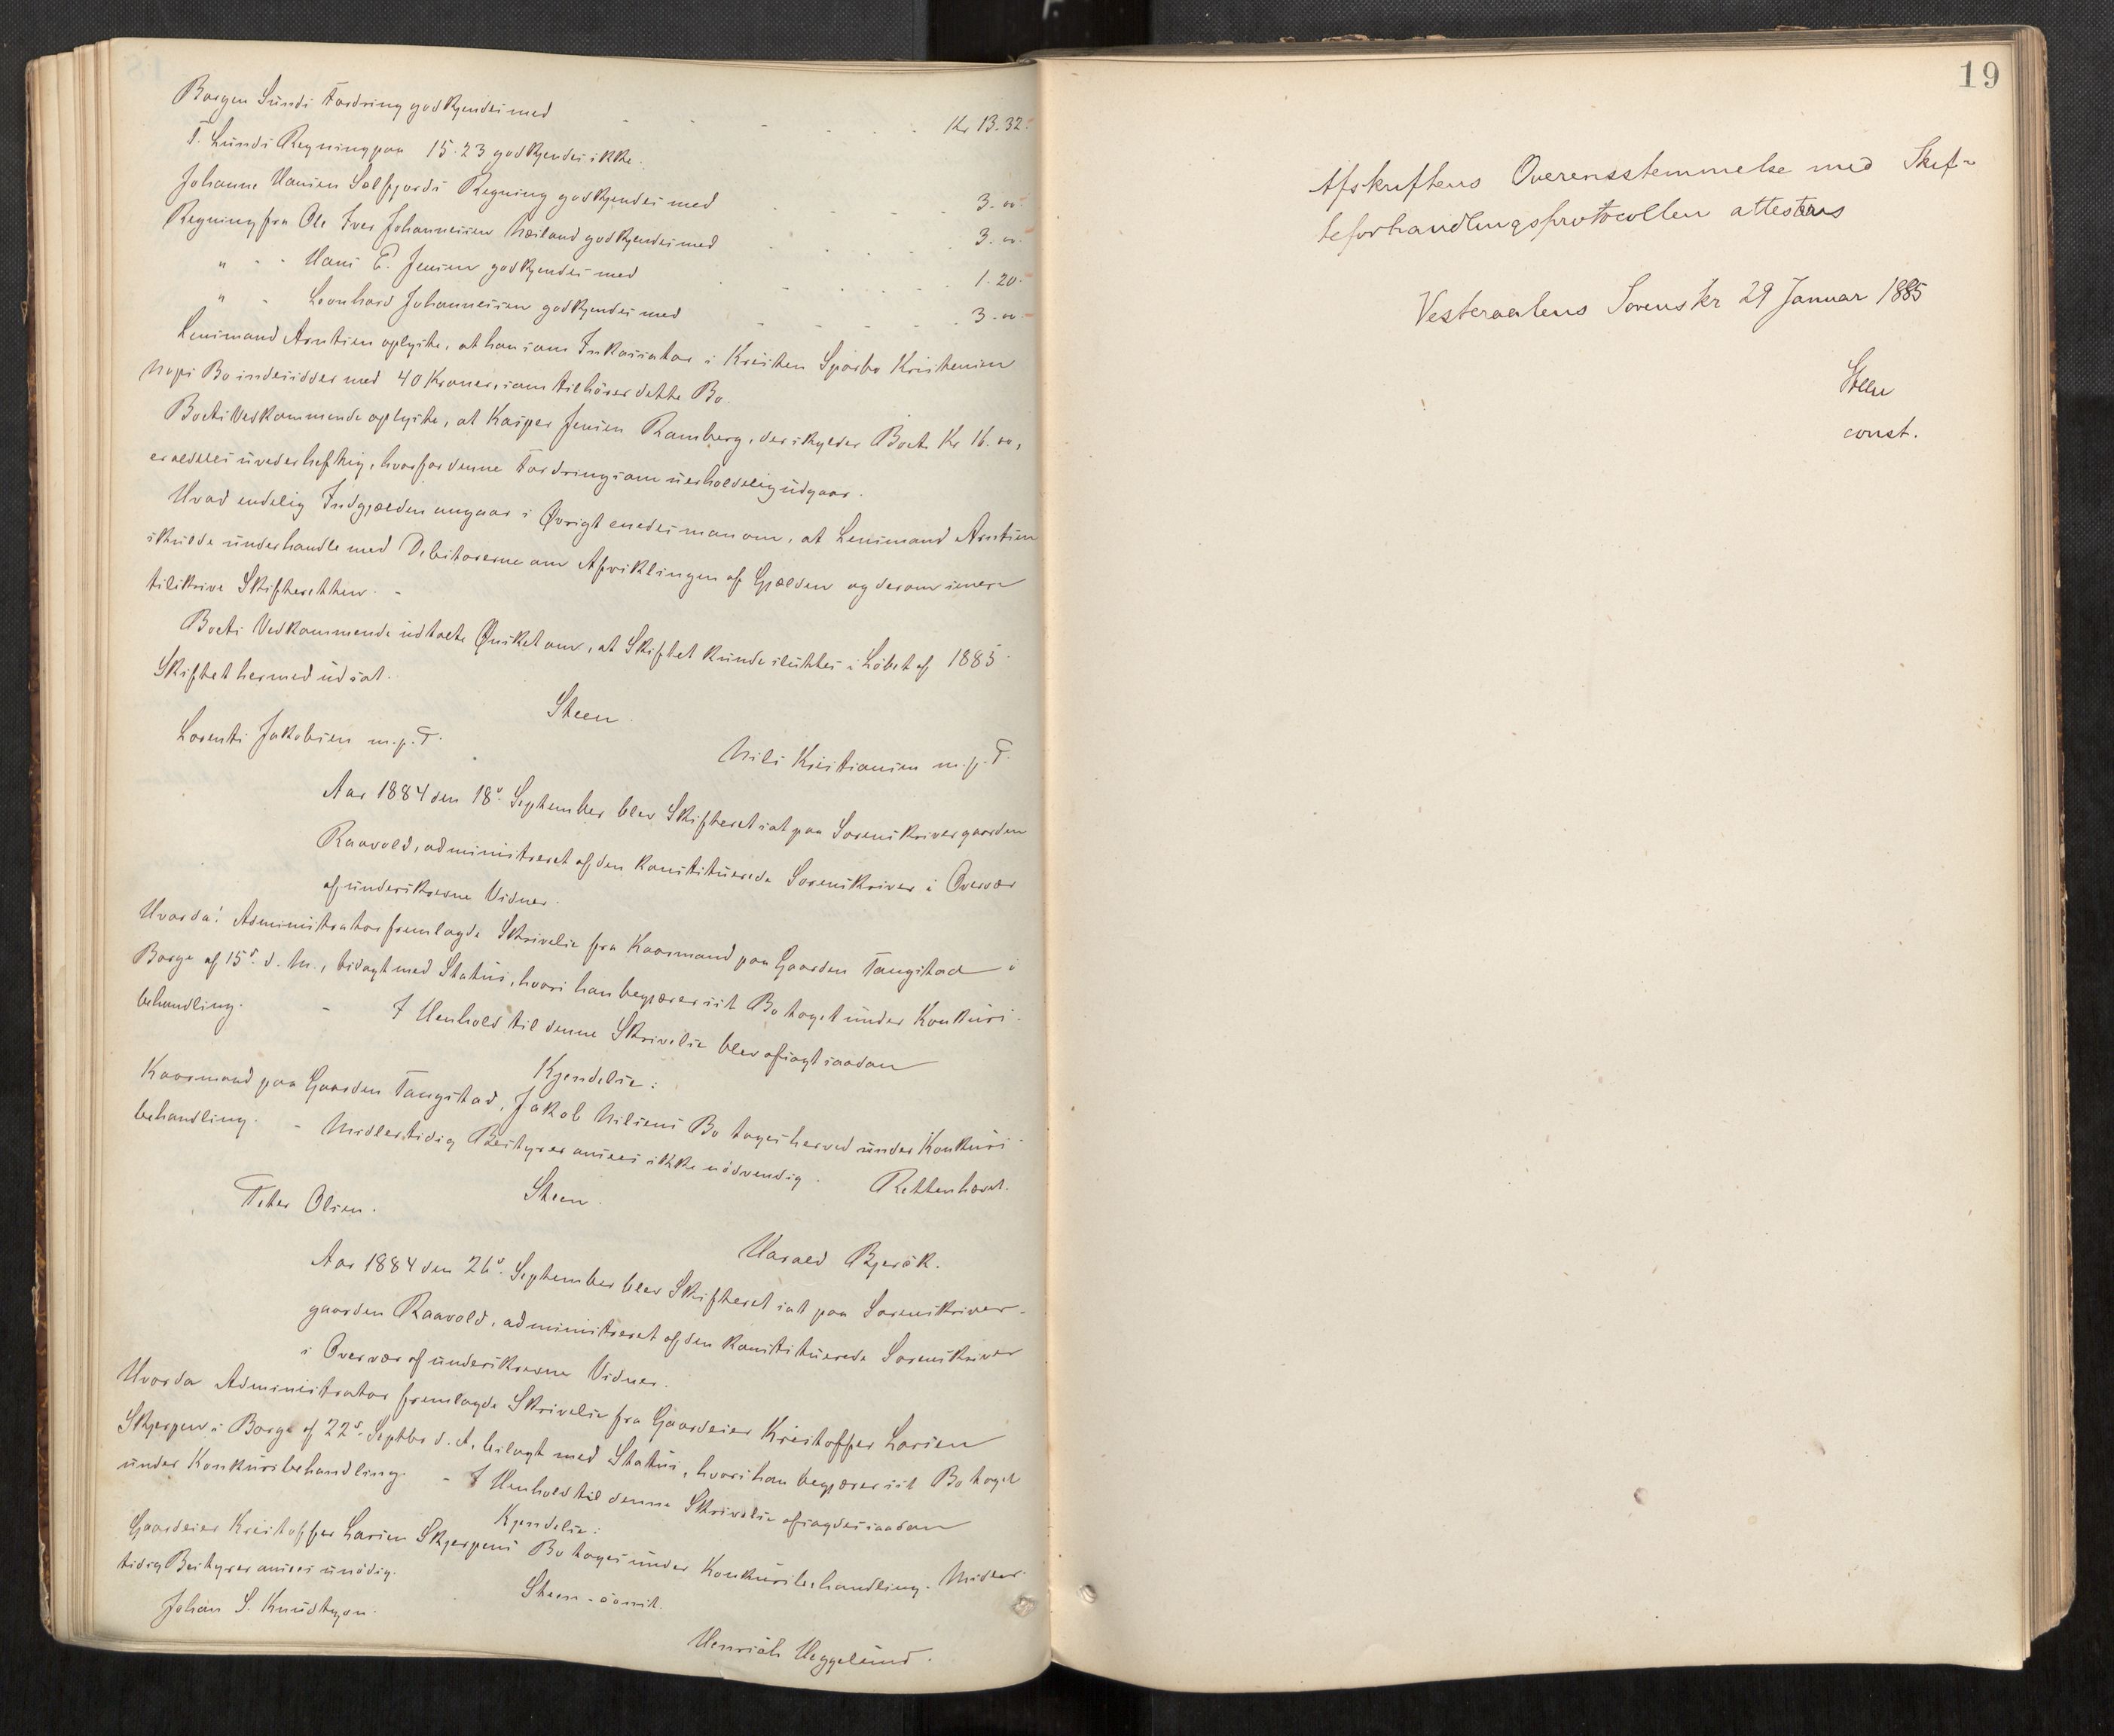 Borgen Lunds Fordring godkjendes med . . . . . . Kr 13.32.
T. Lunds Regning paa 15.23 godkjendes ikke.
Johanne Hansen Solfjords Regning godkjendes med . . . 3.00
Regning fra Ole Iver Johannesen godkjendes med . . . 3.00.
" - - Hans E. Jensen godkjendes med . . . 1.20
" - Leonhard Johannessen godkjendes med . . . 3.00
Lensmand Arntsen oplyste, at han som Inkassator i Kristen Sjorbo Kristensen
Naps Bo indesidder med 40 Kroner, som tilhører dette Bo.
Boets Vedkommende oplyste, at Kasper Jensen Ramberg, der skylder Boet Kr 16.00,
er aldeles uvederheftig, hvorfor denne Fordring som uerholdelig udgaar.
Hvad endelig Indgjælden angaar i Øvrigt enedes man om, at Lensmand Arntsen
skulde underhandle med Debitorerne om Afviklingen af Gjælden og derom senere
tilskrive Skifteretten. -
Boets Vedkommende udtalte Ønsket om, at Skiftet kunde sluttes i Løbet af 1885.
Skiftet hermed udsat.
Steen.
Lorents Jakobsen m.p.P.
Nils Kristiansen m.p.P.
Aar 1884 den 18de September blev Skifteret sat paa Sorenskrivergaarden
Raavold, administreret af den konstituerede Sorenskriver i Overvær
af underskrevne Vidner.
Hvorda: Administrator fremlagde Skrivelse fra Kaarmand paa Gaarden Tangstad i
Borge af 15de d. M., bilagt med Status, hvori han begjærer sit Bo taget under Konkurs-
behandling. - I Henhold til denne Skrivelse blev afsagt saadan
Kjendelse:
Kaarmand paa Gaarden Tangstad, Jakob Nilsens Bo tages herved under Konkurs-
behandling. - Midlertidig Bestyrer ansees ikke nødvendig. Retten hævet.
Steen.
Peter Olsen.
Harald Bjerøk.
Aar 1884 den 26de September blev Skifteret sat paa Sorenskriver-
gaarden Raavold, administreret af den konstituerede Sorenskriver
i Overvær af underskrevne Vidner.
Hvorda Administrator fremlagde Skrivelse fra Gaardeier Kristoffer Larsen
Skjerpen i Borge af 22de Septbr d. A. bilagt med Status, hvori han begjærer sit Bo taget
under Konkursbehandling. - I Henhold til denne Skrivelse afsagdes saadan
Kjendelse:
Gaardeier Kristoffer Larsen Skjerpens Bo tages under Konkursbehandling. Midler-
tidig Bestyrer ansees unødig.
Steen - const.
Johan S. Knudtzon.
Henrik Heggelund.
19
Afskriftens Overensstemmelse med Skif-
teforhandlingsprotocollen attesteres
Vesteraalens Sorenskr 29 Januar 1885
Steen
const.